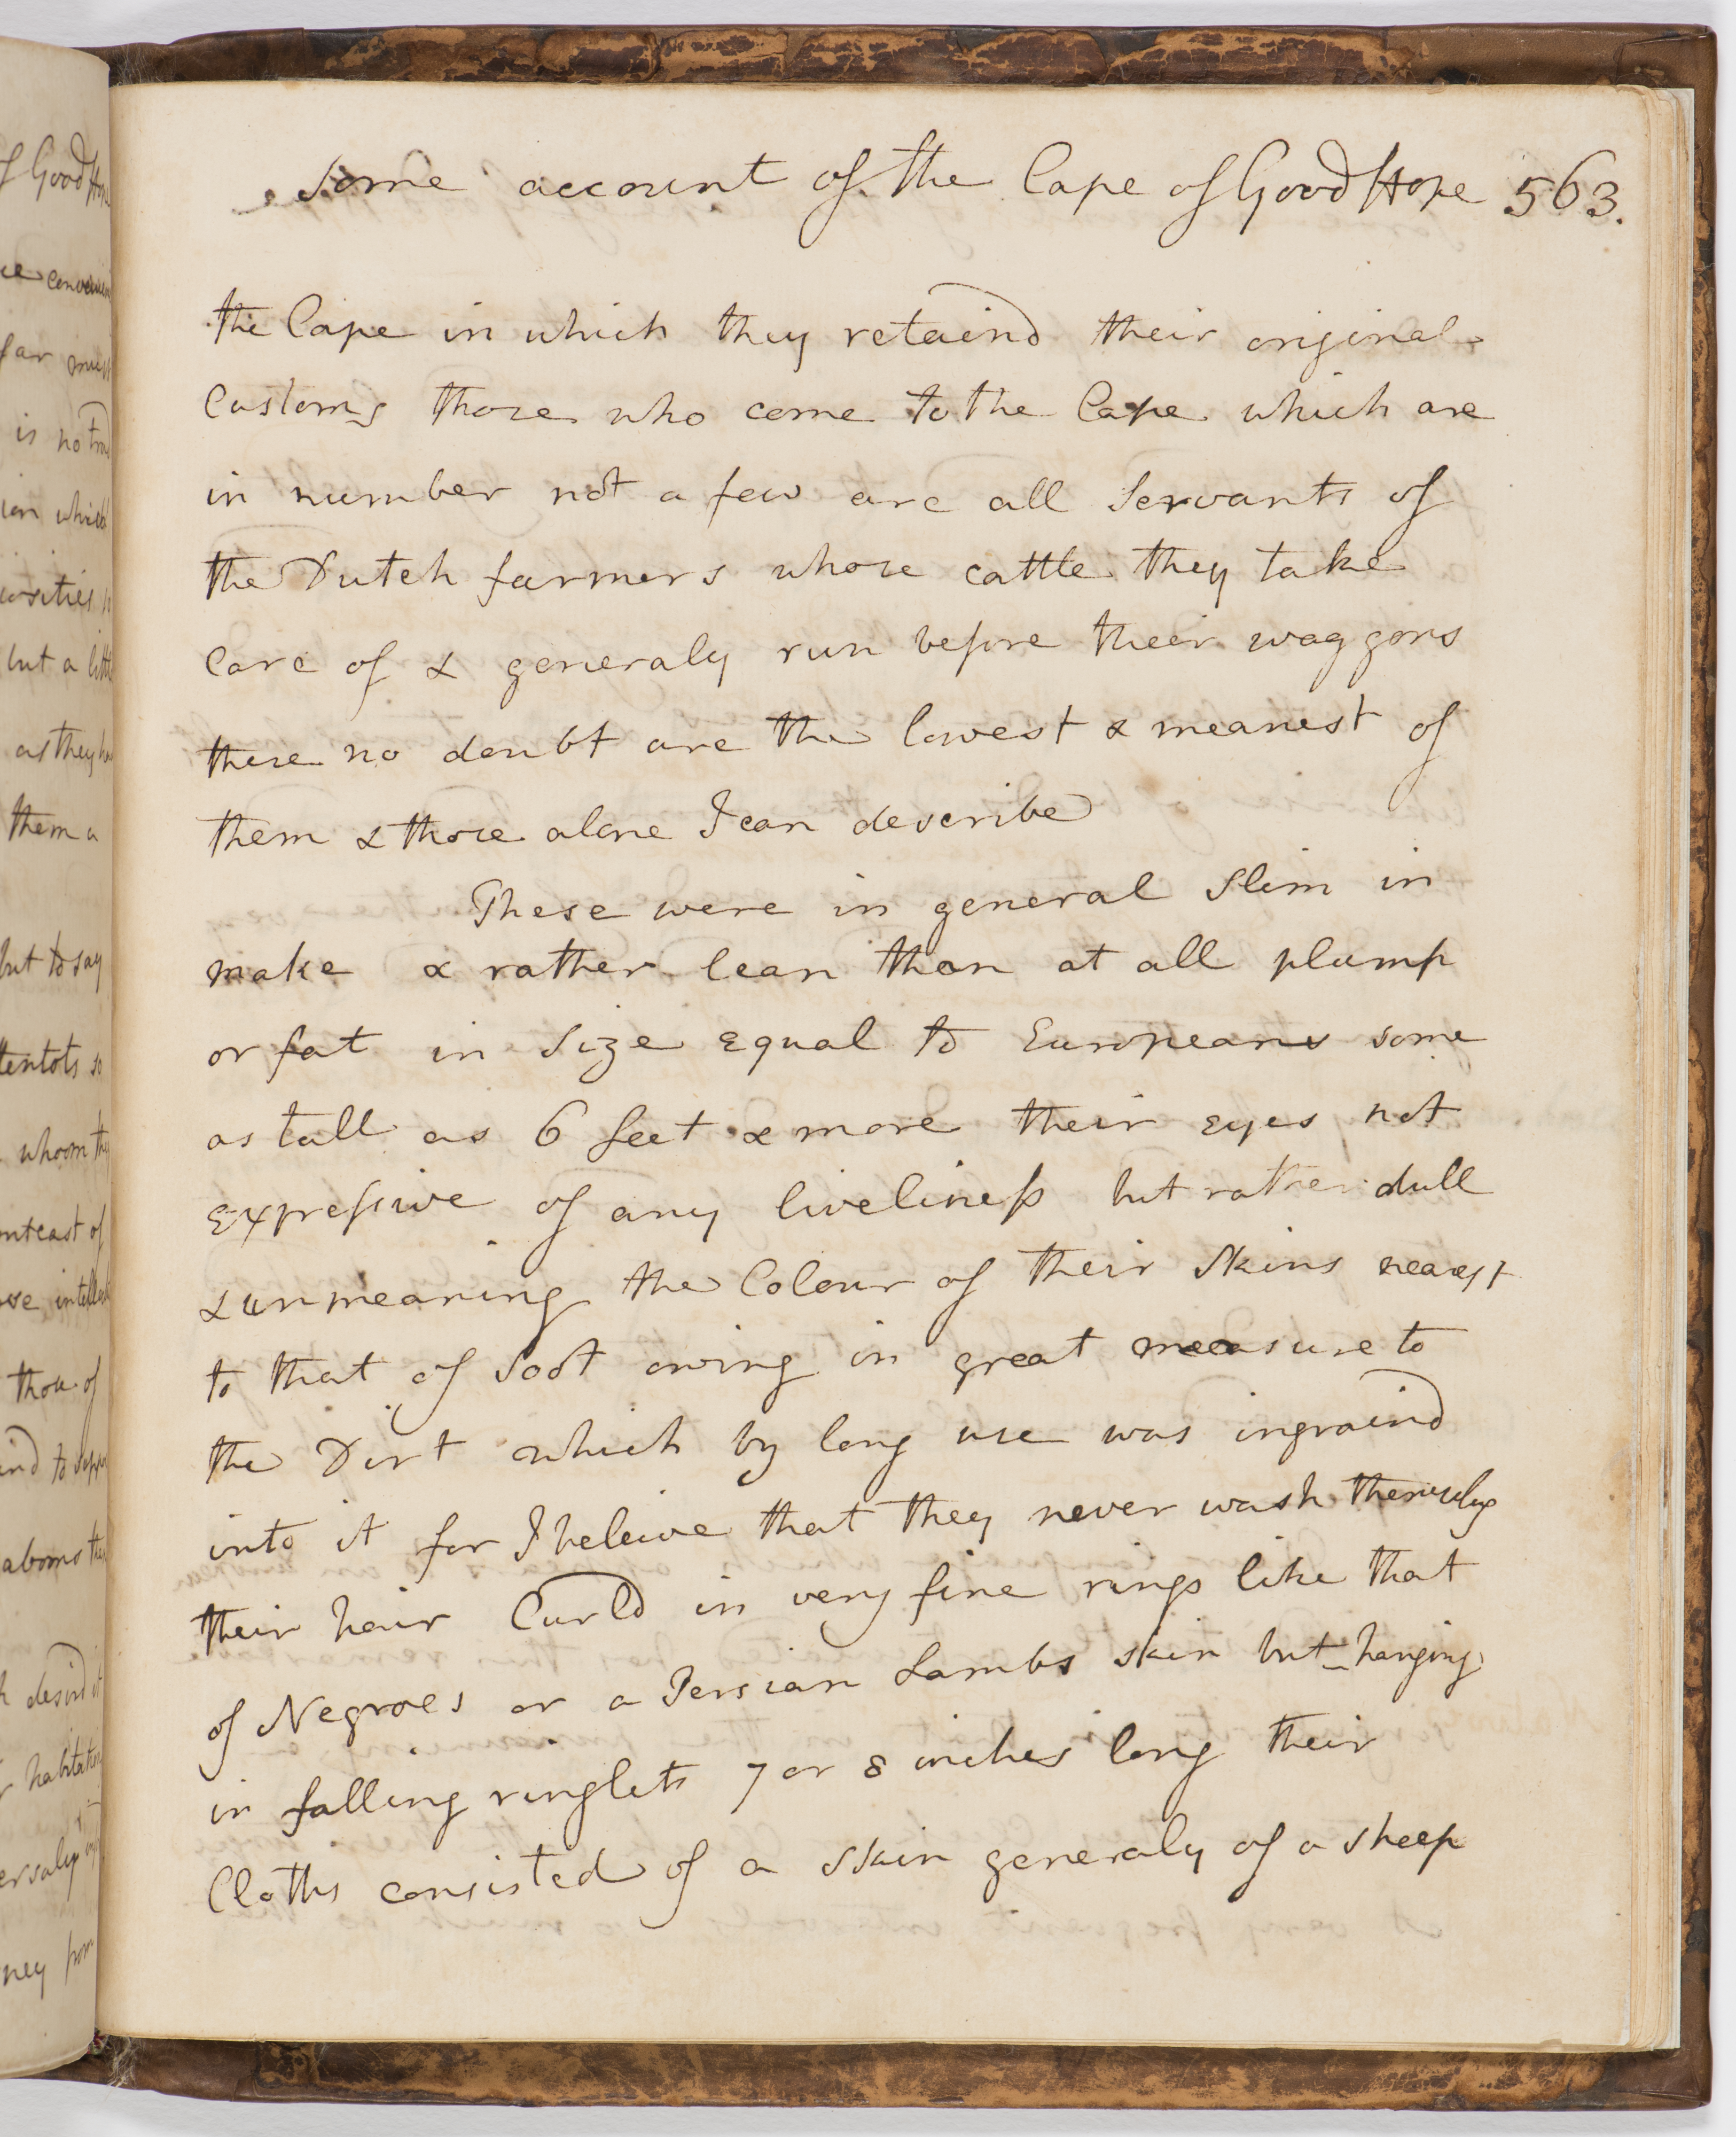 Some account of the Cape of Good Hope 563.
the Cape in which they retaind their original
Customs those who come to the Cape which are
in number not a few are all Servants of
the Dutch farmers whose cattle they take
Care of & generaly run before their waggons
these no doubt are the lowest & meanest of
them & those alone I can describe
These were in general Slim in
make & rather lean than at all plump
or fat in Size equal to Europeans some
as tall as 6 feet & more their eyes not
expressive of any liveliness but rather dull
& unmeaning the Colour of their Skins nearest
to that of Soot owing in great measure to
the Dirt which by long use was ingraind
into it for I beleive that they never wash themselves
their hair Curld in very fine rings like that
of Negroes or a Persian Lambs skin but hanging
in falling ringlets 7 or 8 inches long their
Cloths consisted of a Skin generaly of a sheep